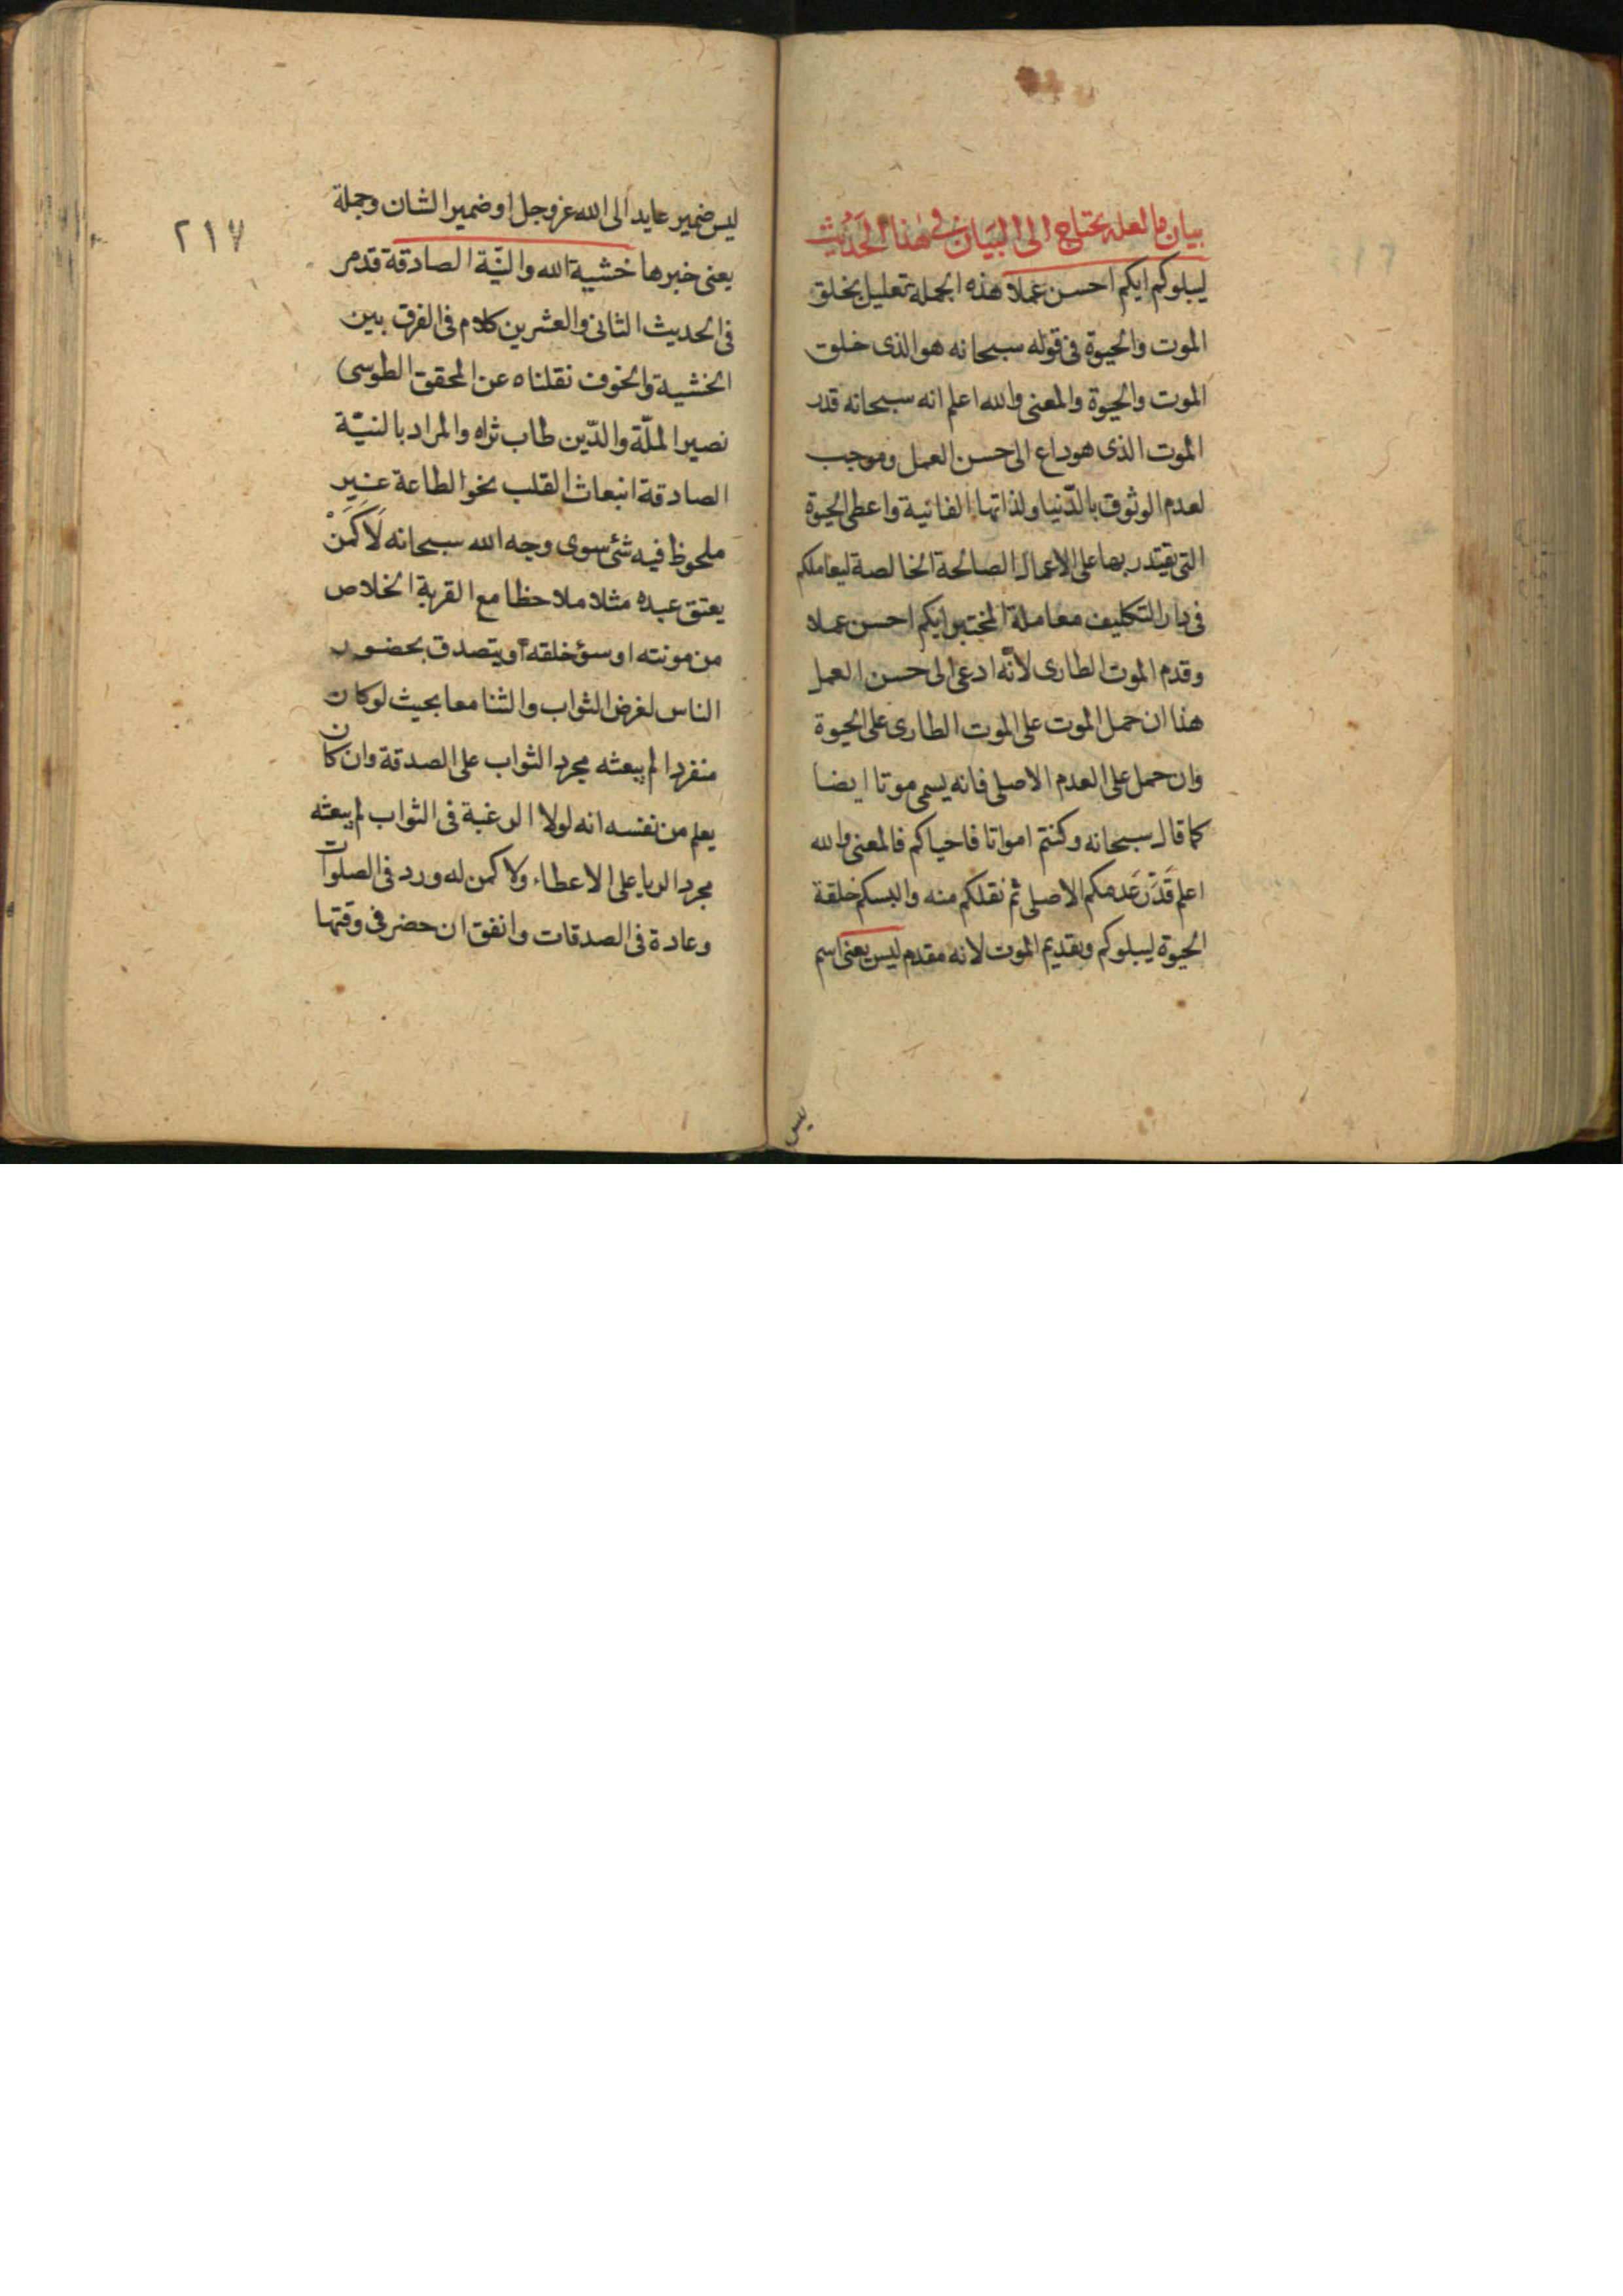 بيان ما لعله يحتاج الى البيان فى هذا الحديث
ليبلوكم ايكم احسن عملا هذه الجملة تعليل بخلق
الموت والحيوة فى قوله سبحانه هو الذى خلق
الموت والحيوة والمعنى والله اعلم انه سبحانه قدر
الموت الذى هو داع الى حسن العمل وموجب
لعدم الوثوق بالدّنيا ولذاتها الفانية واعطى الحيوة
التى يقتدر بها على الاعمال الصالحة الخالصة ليعاملكم
فى دار التكليف معاملة المختبر ايكم احسن عملا
وقدم الموت الطارى لانّه ادعى الى حسن العمل
هذا ان حمل الموت على الموت الطارى على الحيوة
وان حمل على العدم الاصلى فانه يسمى موتا ايضا
كما قال سبحانه وكنتم امواتا فاحياكم فالمعنى والله
اعلم قَدَّرَ عَدمكم الاصلى ثم نقلكم منه والبسكم خلقة
الحيوة ليبلوكم وتقديم الموت لانه مقدم ليس يعنى اسم
ليس
٢١٧
ليس ضمير عايد الى الله عز وجل او ضمير الشان وجملة
يعنى خبرها خشية الله والنيّة الصادقة قد مر
فى الحديث الثانى والعشرين كلام فى الفرق بين
الخشية والخوف نقلناه عن المحقق الطوسى
نصير الملّة والدّين طاب ثراه والمراد بالنيّة
الصادقة انبعاث القلب نحو الطاعة غير
ملحوظ فيه شئ سوى وجه الله سبحانه لَا كَمَنْ
يعتق عبده مثلا ملاحظا مع القربة الخلاص
من مونته او سؤ خلقه او يتصدق بحضور
الناس لغرض الثواب والثنا معا بحيث لو كان
منفردا لم يبعثه مجرد الثواب على الصدقة وان كان
يعلم من نفسه انه لولا الرغبة فى الثواب لم يبعثه
مجرد الريا على الاعطاء ولا كمن له ورد فى الصلوات
وعادة فى الصدقات واتفق ان حضر فى وقتها